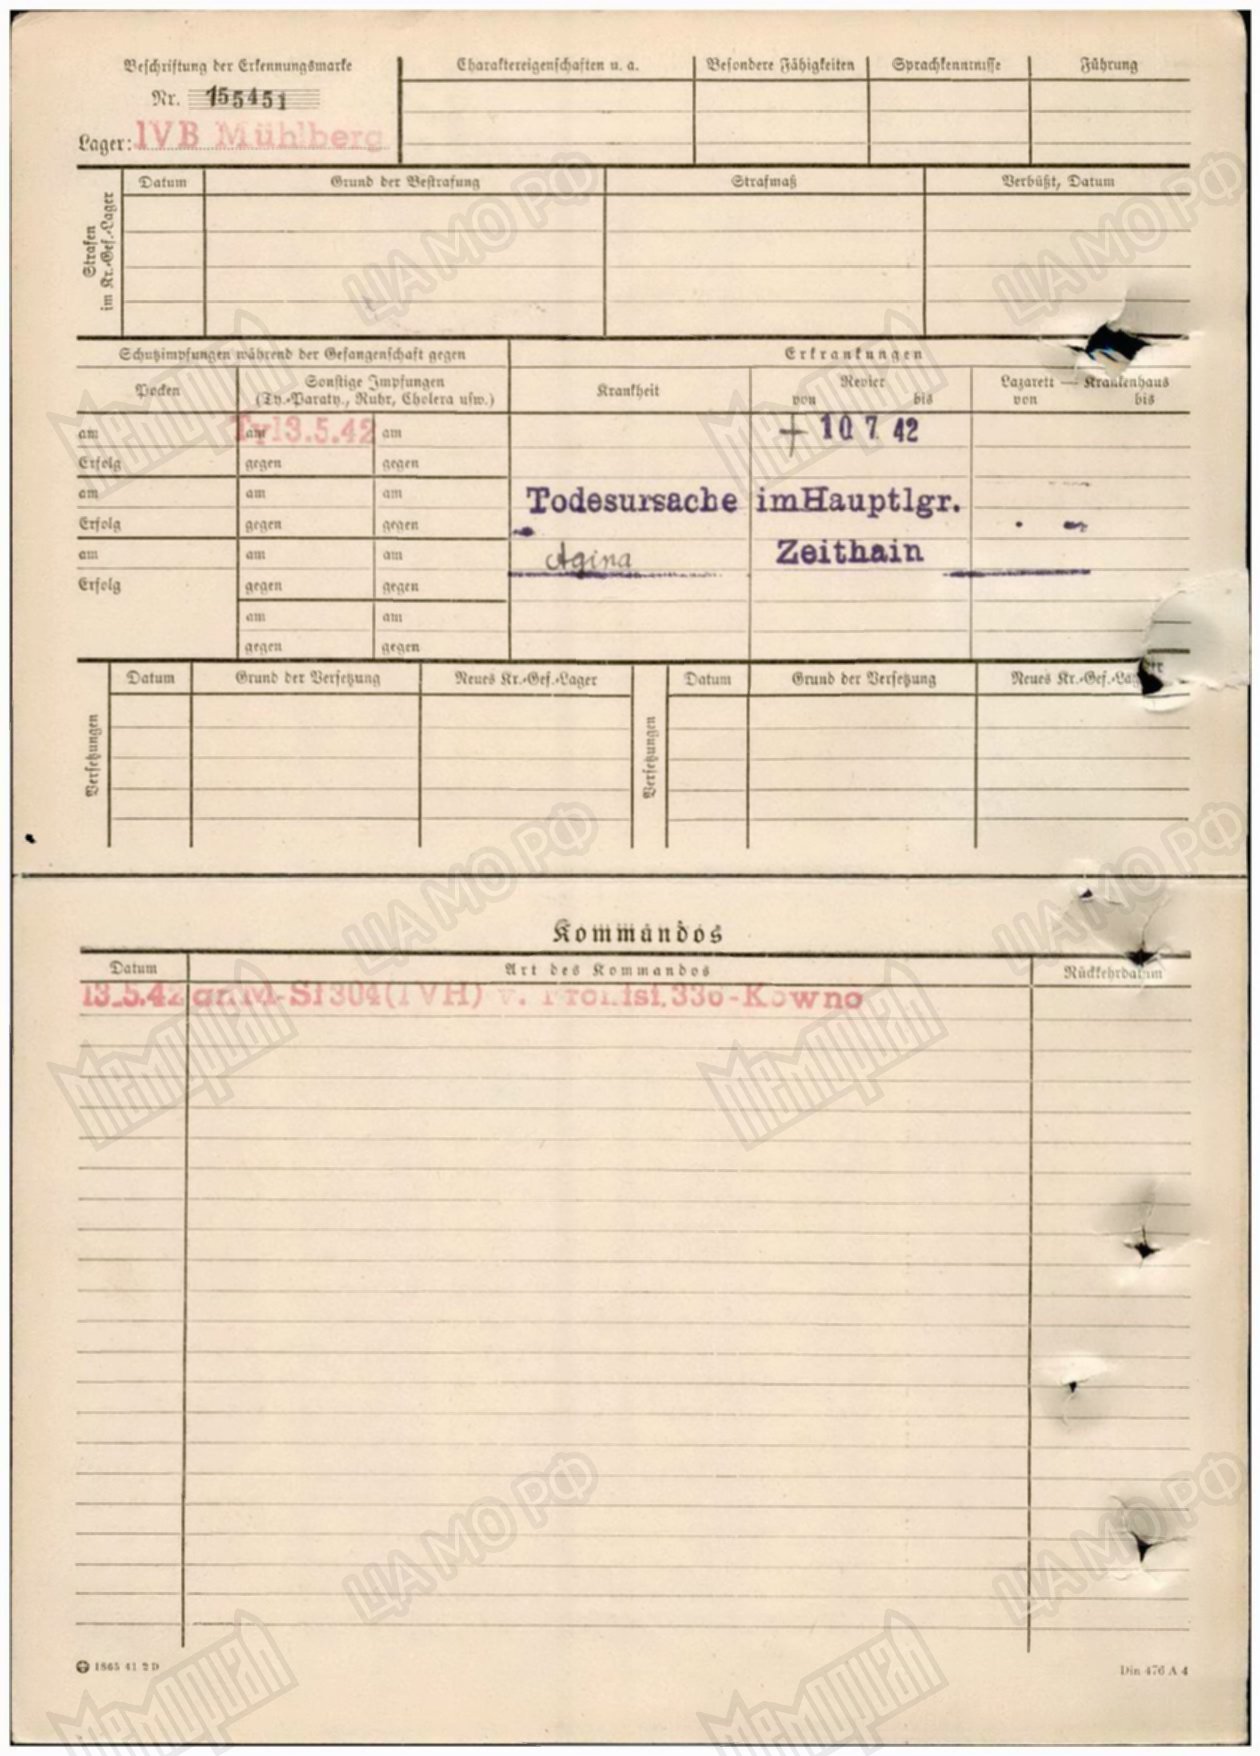 Beschriftung der Erkennungsmarke
Nr. 155451
Lager: IVB Mühlberg
Charaktereigenschaften u. a.
Besondere Fähigkeiten
Sprachkenntnisse
Führung
Strafen im Kr.-Gef.-Lager
Datum
Grund der Bestrafung
Strafmaß
Verbüßt, Datum
Schutzimpfungen während der Gefangenschaft gegen
Erkrankungen
Pocken
Sonstige Impfungen
(Ty.-Paraty., Ruhr, Cholera usw.)
Krankheit
Revier
von bis
Lazarett — Krankenhaus
von bis
am am am
Ty13.5.42
+ 10 7 42
Erfolg gegen gegen
am am am
Todesursache im Hauptlgr.
Erfolg gegen gegen
am am am
Agina Zeithain
Erfolg gegen gegen
am am
gegen gegen
Versetzungen
Datum
Grund der Versetzung
Neues Kr.-Gef.-Lager
Versetzungen
Datum
Grund der Versetzung
Neues Kr.-Gef.-Lager
Kommandos
Datum
Art des Kommandos
Rückkehrdatum
13.5.42 an M-St 304(IVH) v. 336-Kowno
1865 41 2 D
Din 476 A 4
ЦАМО РФ
ЦАМО РФ
Мемориал
Мемориал
ЦАМО РФ
ЦАМО РФ
Мемориал
Мемориал
ЦАМО РФ
ЦАМО РФ
Мемориал
Мемориал